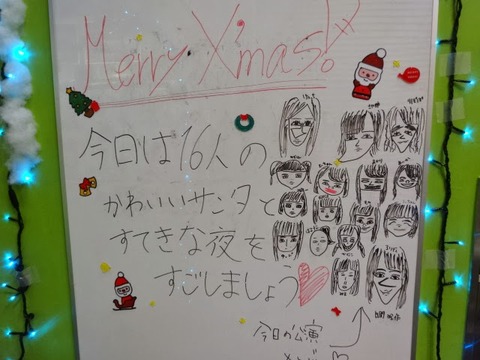 Merry X'mas!
今日は16人の
かわいいサンタと
すてきな夜を
すごしましょう
今日の公演